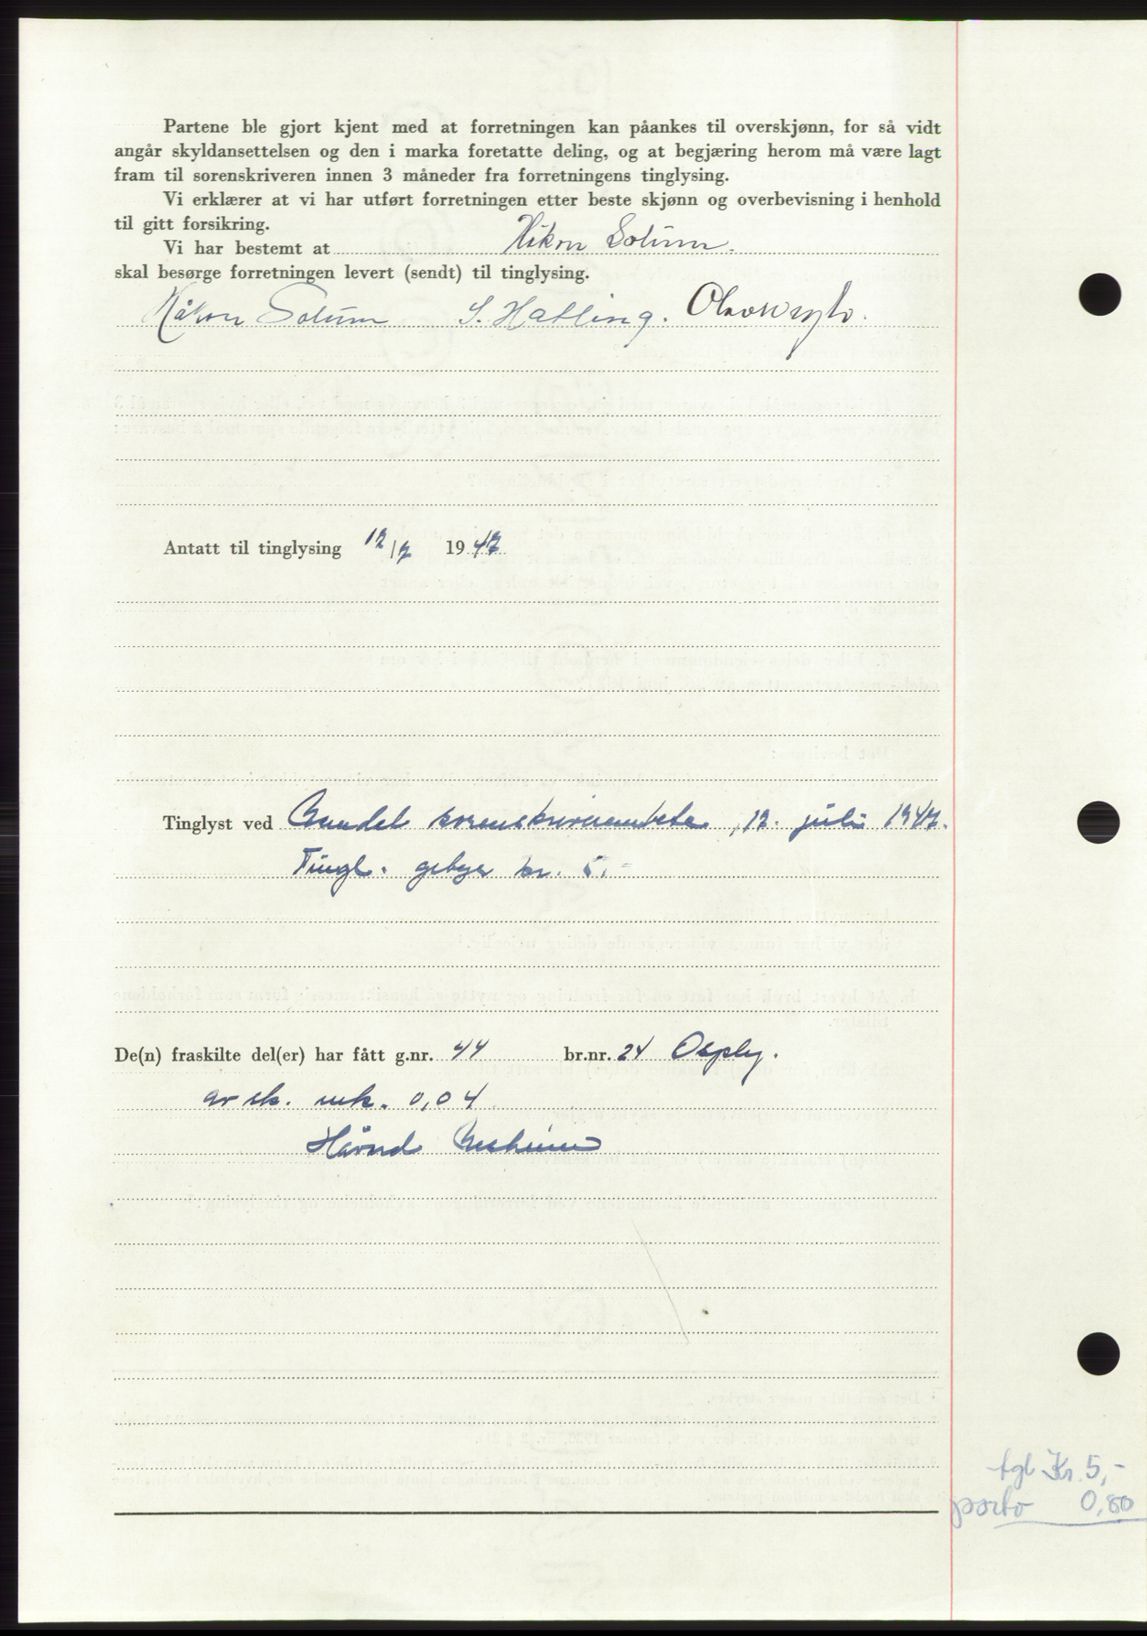 Partene ble gjort kjent med at forretningen kan påankes til overskjønn, for så vidt
angår skyldansettelsen og den i marka foretatte deling, og at begjæring herom må være lagt
fram til sorenskriveren innen 3 måneder fra forretningens tinglysing.
Vi erklærer at vi har utført forretningen etter beste skjønn og overbevisning i henhold
til gitt forsikring.
Vi har bestemt at Håkon Solum.
skal besørge forretningen levert (sendt) til tinglysing.
Håkon Solum S. Hatling.
Antatt til tinglysing 12/7 1947
Tinglyst ved sorenskriverembete, 12. juli 1947.
Tingl. gebyr kr. 5.-
De(n) fraskilte del(er) har fått g.nr. 44 br.nr. 24 Osply.
av sk. mk. 0,04
Håvard
tgl Kr. 5,-
porto 0,80